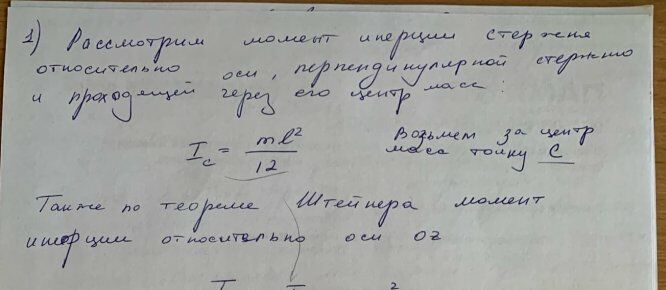 1) Рассмотрим момент инерции стержня
относительно оси, перпендикулярной стержню
и проходящей через его центр масс:
I_c = ml²/12
Возьмем за центр
масса точку C
Также по теореме Штейнера момент
инерции относительно оси oz